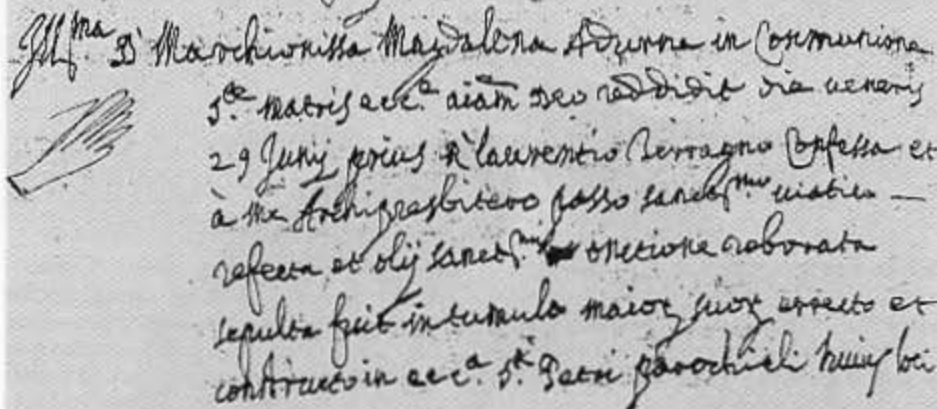 Ill.ma D. Marchionissa Magdalena Adurna in Comunione
S.te Matris ecc.a aiam Deo reddidit die veneris
29 Junij prius R. laurentio Serragno Confessa et
à me Archipresbitero Gasso sanct.mo viatico —
refecta et olij sanct.mi onctione roborata
sepulta fuit in tumulo maior suor errecto et
constructo in ecc.a S.ti Petri parochiali huius loci